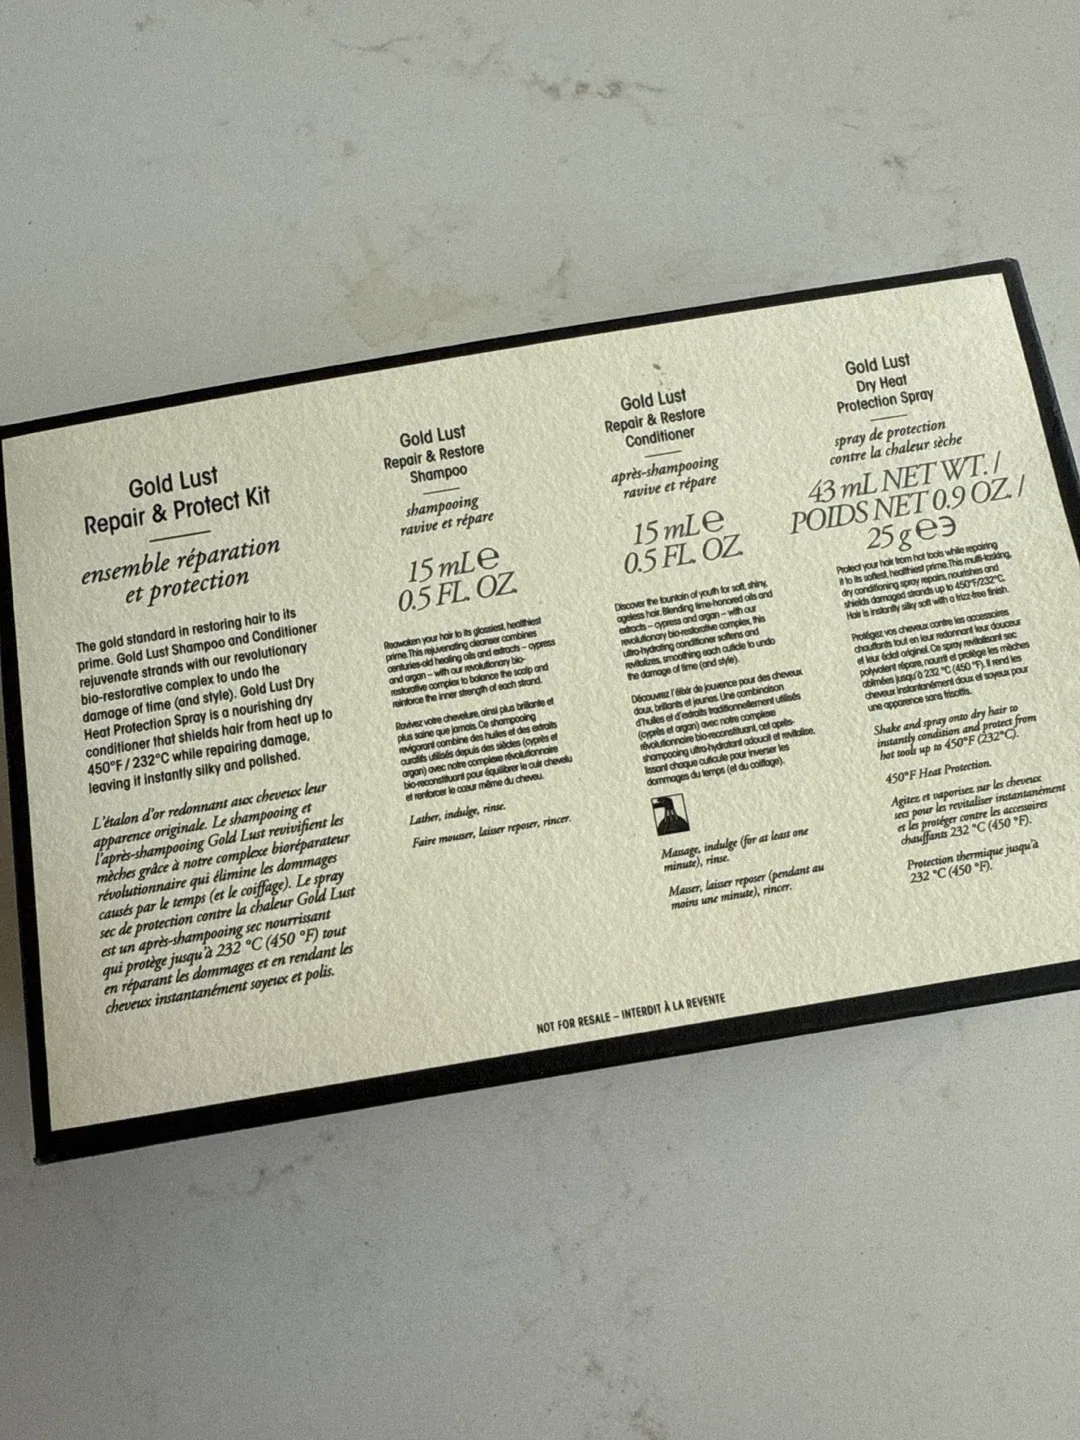 Gold Lust
Repair & Protect Kit
ensemble réparation
et protection
The gold standard in restoring hair to its
prime. Gold Lust Shampoo and Conditioner
rejuvenate strands with our revolutionary
bio-restorative complex to undo the
damage of time (and style). Gold Lust Dry
Heat Protection Spray is a nourishing dry
conditioner that shields hair from heat up to
450°F / 232°C while repairing damage,
leaving it instantly silky and polished.
L'étalon d'or redonnant aux cheveux leur
apparence originale. Le shampooing et
l'après-shampooing Gold Lust revivifient les
mèches grâce à notre complexe bioréparateur
révolutionnaire qui élimine les dommages
causés par le temps (et le coiffage). Le spray
sec de protection contre la chaleur Gold Lust
est un après-shampooing sec nourrissant
qui protège jusqu'à 232 °C (450 °F) tout
en réparant les dommages et en rendant les
cheveux instantanément soyeux et polis.
Gold Lust
Repair & Restore
Shampoo
shampooing
ravive et répare
15 mL ℮
0.5 FL. OZ.
Reawaken your hair to its glossiest, healthiest
prime. This rejuvenating cleanser combines
centuries-old healing oils and extracts – cypress
and argan – with our revolutionary bio-
restorative complex to balance the scalp and
reinforce the inner strength of each strand.
Ravivez votre chevelure, ainsi plus brillante et
plus saine que jamais. Ce shampooing
revigorant combine des huiles et des extraits
curatifs utilisés depuis des siècles (cyprès et
argan) avec notre complexe révolutionnaire
bio-reconstituant pour équilibrer le cuir chevelu
et renforcer le cœur même du cheveu.
Lather, indulge, rinse.
Faire mousser, laisser reposer, rincer.
Gold Lust
Repair & Restore
Conditioner
après-shampooing
ravive et répare
15 mL ℮
0.5 FL. OZ.
Discover the fountain of youth for soft, shiny,
ageless hair. Blending time-honored oils and
extracts – cypress and argan – with our
revolutionary bio-restorative complex, this
ultra-hydrating conditioner softens and
revitalizes, smoothing each cuticle to undo
the damage of time (and style).
Découvrez l'élixir de jouvence pour des cheveux
doux, brillants et jeunes. Une combinaison
d'huiles et d'extraits traditionnellement utilisés
(cyprès et argan) avec notre complexe
révolutionnaire bio-reconstituant, cet après-
shampooing ultra-hydratant adoucit et revitalise,
lissant chaque cuticule pour inverser les
dommages du temps (et du coiffage).
Massage, indulge (for at least one
minute), rinse.
Masser, laisser reposer (pendant au
moins une minute), rincer.
Gold Lust
Dry Heat
Protection Spray
spray de protection
contre la chaleur sèche
43 mL NET WT. /
POIDS NET 0.9 OZ. /
25 g ℮ 3
Protect your hair from hot tools while repairing
it to its softest, healthiest prime. This multi-tasking,
dry conditioning spray repairs, nourishes and
shields damaged strands up to 450°F/232°C.
Hair is instantly silky soft with a frizz-free finish.
Protégez vos cheveux contre les accessoires
chauffants tout en leur redonnant leur douceur
et leur éclat originel. Ce spray revitalisant sec
polyvalent répare, nourrit et protège les mèches
abîmées jusqu'à 232 °C (450 °F). Il rend les
cheveux instantanément doux et soyeux pour
une apparence sans frisottis.
Shake and spray onto dry hair to
instantly condition and protect from
hot tools up to 450°F (232°C).
450°F Heat Protection.
Agitez et vaporisez sur les cheveux
secs pour les revitaliser instantanément
et les protéger contre les accessoires
chauffants 232 °C (450 °F).
Protection thermique jusqu'à
232 °C (450 °F).
NOT FOR RESALE – INTERDIT À LA REVENTE